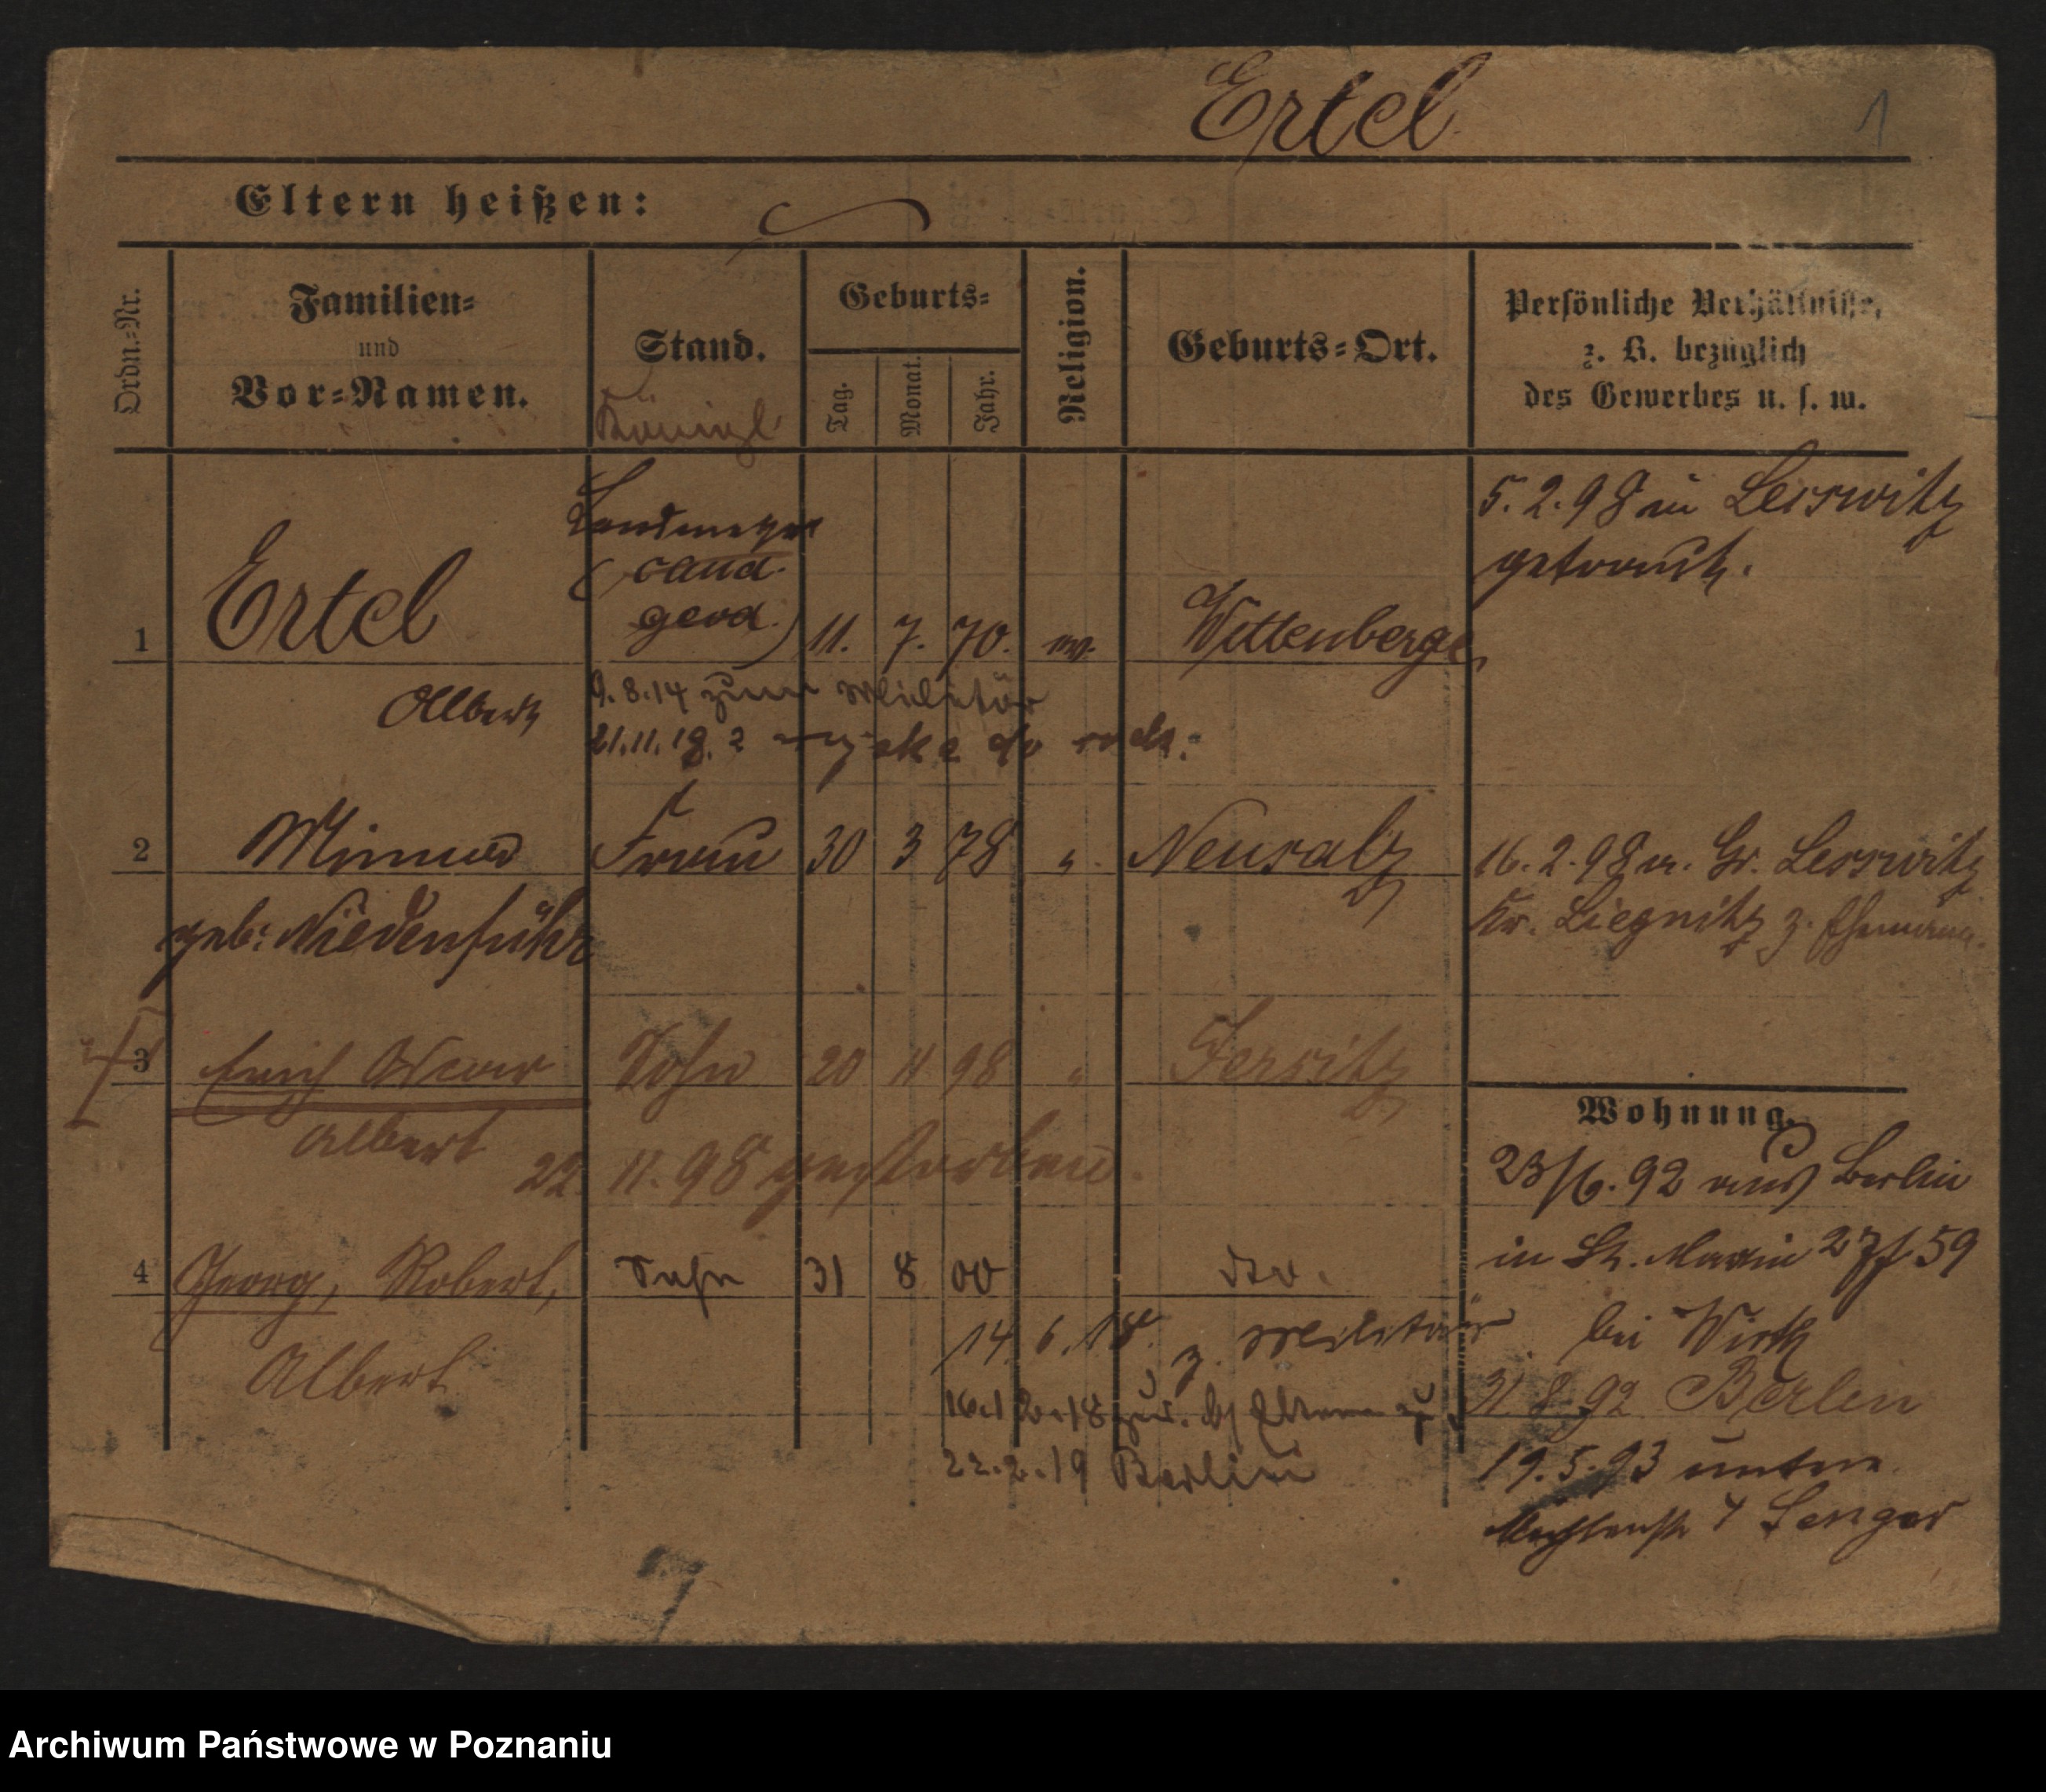 Ertel
1
Eltern heißen:
Ordn.=Nr.
Familien=
und
Vor=Namen.
Stand.
Königl
Geburts=
Tag.
Monat.
Jahr.
Religion.
Geburts=Ort.
Persönliche Verhältnisse,
z. B. bezüglich
des Gewerbes u. s. w.
1
Ertel
Albert
Landmesser
(cand.
geod.)
11. 7. 70. ev. Wittenberge
5. 2. 98 in Lesswitz
getraut.
9.8.14 zum Militär
21.11.18.
2 Minna Frau 30 3 78 " Neusalz
geb: Niedenführ
16.2.98 v. Gr. Lesswitz
Kr. Liegnitz z. Ehemann.
3 Erich Sohn 20 11 98 " Jersitz
Albert
22. 11. 98 gestorben.
4 Georg, Robert, Sohn 31 8 00 dto.
Albert
14. 6. 18. z. Militär
16.12.18 zur. Eltern
22.2.19 Berlin
Wohnung.
23/6. 92 aus Berlin
in St. Martin 27 59
bei Wirth
31 8 92 Berlin
19. 5. 93 unten
7
Archiwum Państwowe w Poznaniu